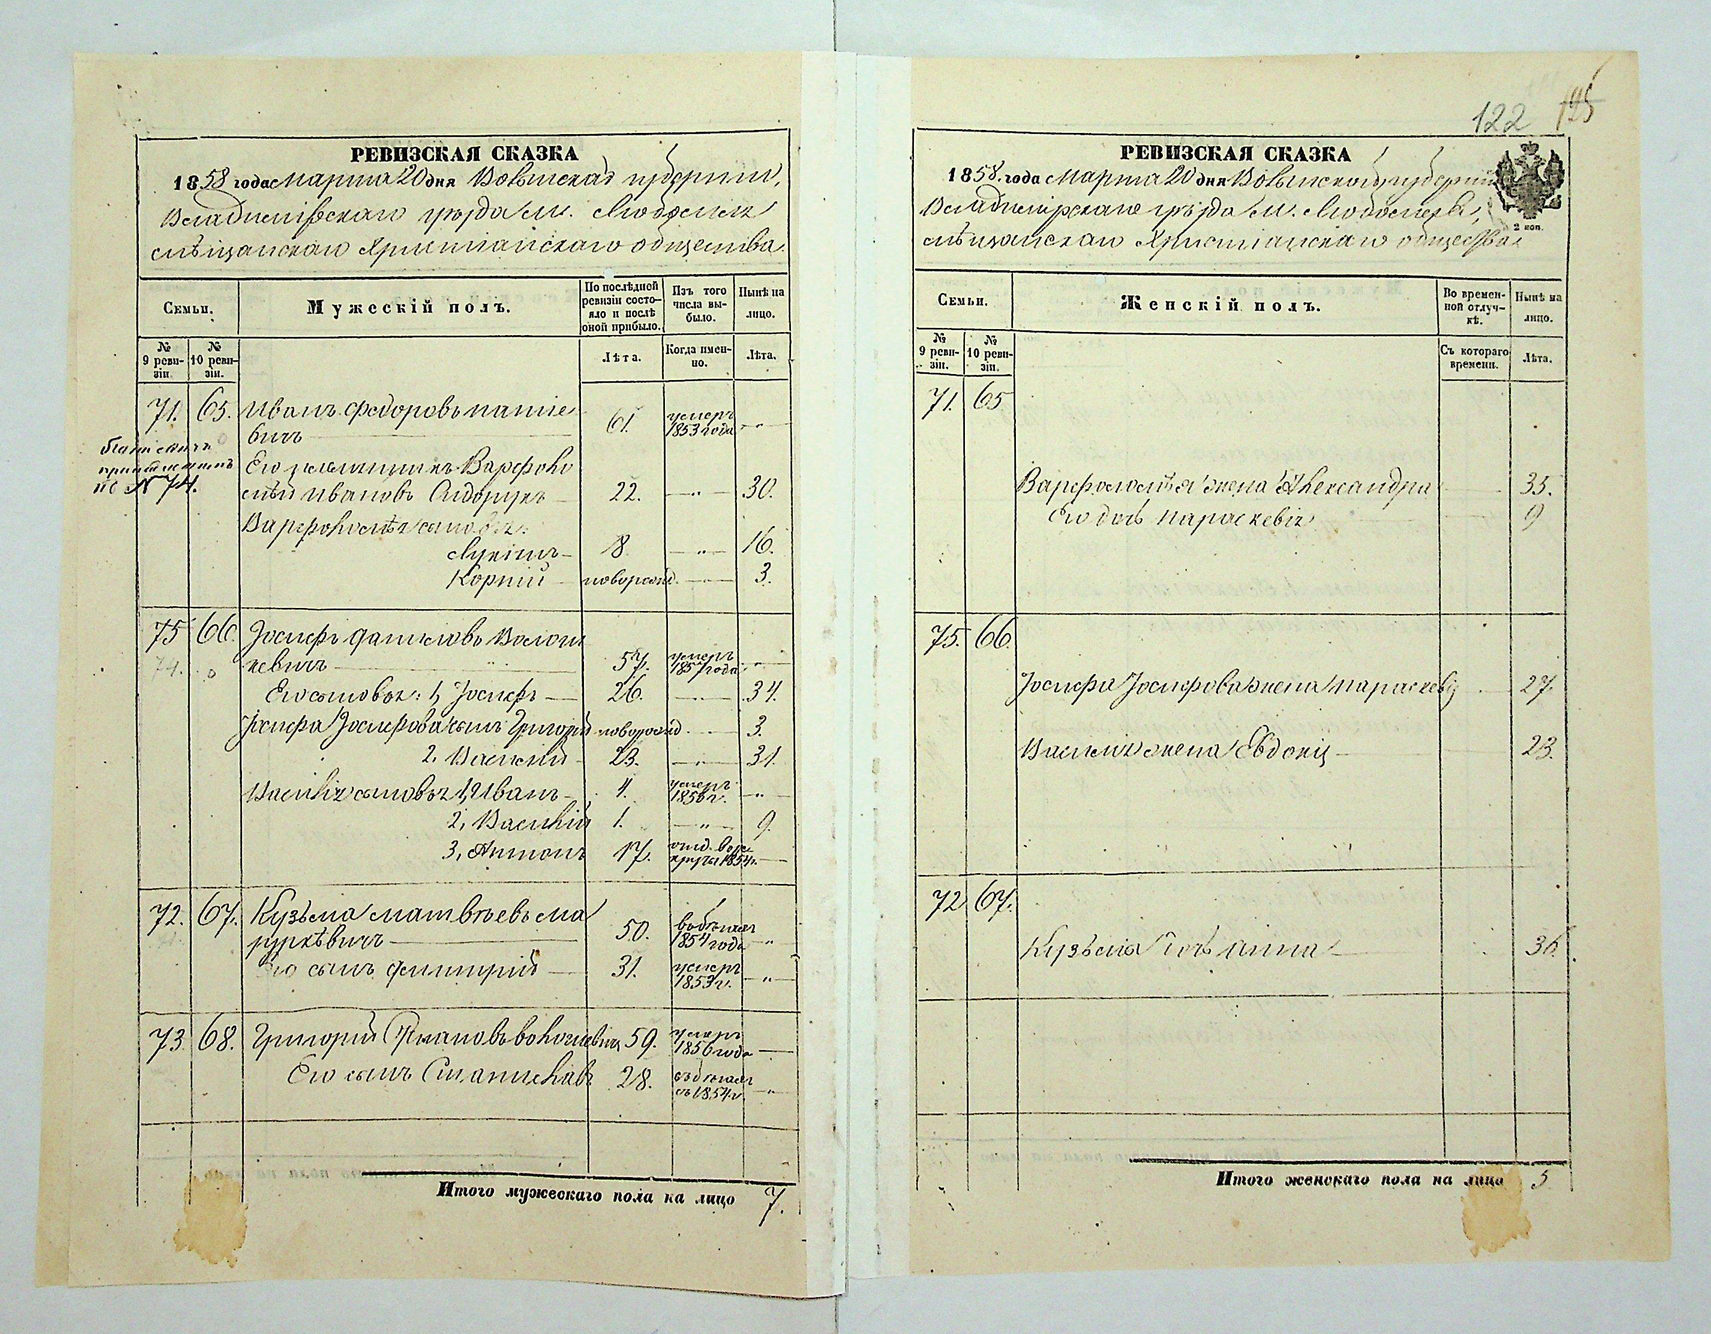 РЕВИЗСКАЯ СКАЗКА
1858 года марта 20 дня Волынской губернии,
Владимірскаго уѣзда м. Любомля
мѣщанскаго Христіанскаго общества
Семьи.
Мужескій полъ.
По послѣдней ревизіи состояло и послѣ оной прибыло.
Изъ того числа выбыло.
Нынѣ на лицо.
№ 9 ревизіи.
№ 10 ревизіи.
Лѣта.
Когда именно.
Лѣта.
71. 65. Иванъ Федоровъ
вичъ 61. умеръ 1853 года - " -
№ 74.
Его Варфоло
мѣй Ивановъ Сидорукъ 22. - " - 30.
Варфоломѣя сыновья:
Лукіанъ 8 - " - 16.
Корнiй новорожд. 3.
75 66. Іосифъ Даниловъ
74.
кевичъ 57. умеръ 1857 года "
Его сыновья: 1, Іосифъ 26. 34.
Іосифа Іосифова сынъ Григорій новорожд 3.
2, Василій 23. - " - 31.
Василія сыновья 1, Иванъ 4. умеръ 1856 г. - " -
2, Василій 1. - " - 9.
3, Антонъ 17. отд. въ рекруты 1854 г.
72. 67. Кузьма Матвѣевъ Ма
рукѣвичъ 50. 1854 года "
Его сынъ Димитрій 31. умеръ 1853 г. - " -
73. 68. Григорій 59. умеръ 1856 года
Его сынъ Станиславъ 28. съ 1854 г. - " -
Итого мужескаго пола на лицо 7.
122 125
РЕВИЗСКАЯ СКАЗКА
1858. года марта 20 дня Волынской губерніи
Владимірскаго уѣзда м. Любомля,
мѣщанскаго Христіанскаго общества
2 коп.
Семьи.
Женскій полъ.
Во временной отлучкѣ.
Нынѣ на лицо.
№ 9 ревизіи.
№ 10 ревизіи.
Съ котораго времени.
Лѣта.
71. 65
Варфоломѣя жена Александра 35.
Его дочь Параскевія 9
75. 66.
Іосифа Іосифова жена Параскевія 27.
Василія жена Евдокія 23.
72 67.
Кузьмы дочь Анна 36.
Итого женскаго пола на лицо 5